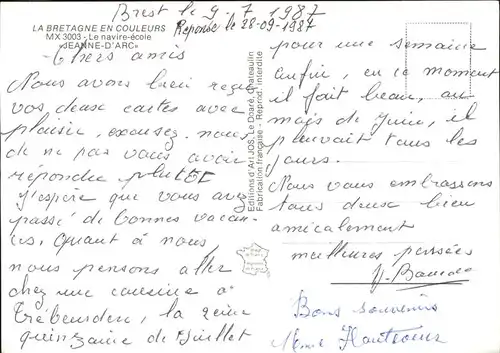 Brest le 9-7 1987
Réponse le 28-09-1987
LA BRETAGNE EN COULEURS
MX 3003 - Le navire-école
«JEANNE-D'ARC»
Chers amis
Nous avons bien reçu
vos deux cartes avec
plaisir, excusez-nous
de ne pas vous avoir
répondre plutôt
j'espère que vous avez
passé de bonnes vacan-
ces. Quant à nous
nous pensons aller
chez une cousine à
Trébeurden, la 2eme
quinzaine de Juillet
Editions d'Art JOS Le Doaré, Chateaulin
Fabrication française - Reprod. interdite
pour une semaine
Enfin, en ce moment
il fait beau, au
mois de juin, il
pleuvait tous les
jours.
Nous vous embrassons
tous deux bien
amicalement
meilleures pensées
Bons souvenirs